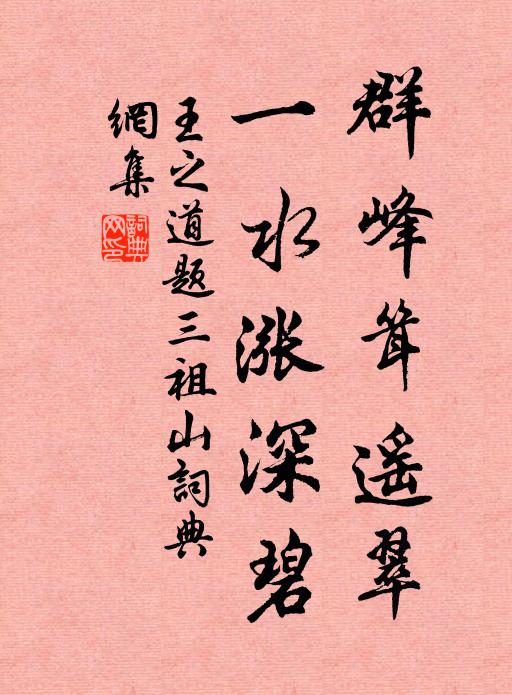 群峰耸遥翠
一水漲深碧
王之道题三祖山詞典
網集
詞典網印